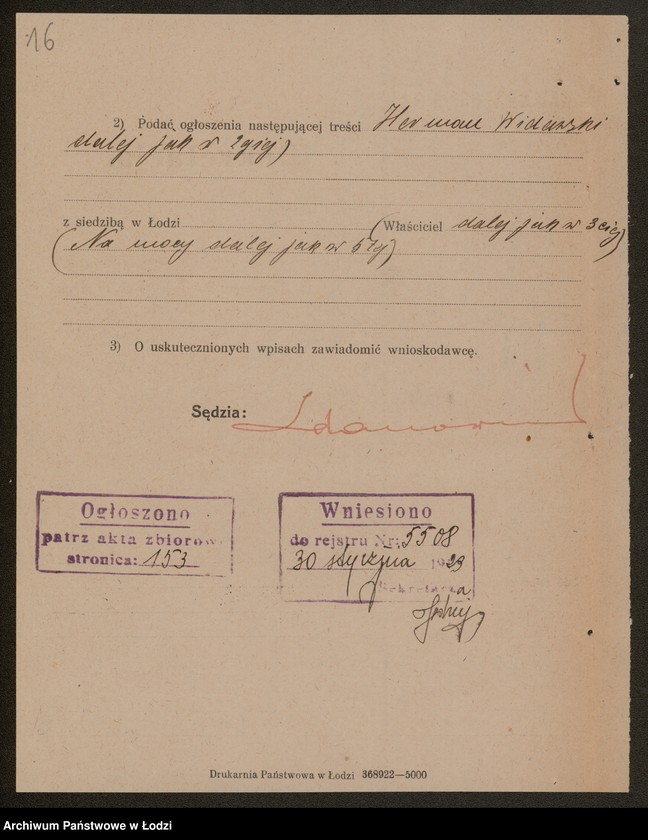 16
2) Podać ogłoszenia następującej treści Herman Widawski
dalej jak w 2giej)
z siedzibą w Łodzi (Właściciel dalej jak w 3ciej)
(Na mocy dalej jak w 5tej)
3) O uskutecznionych wpisach zawiadomić wnioskodawcę.
Sędzia:
Ogłoszono
patrz akta zbiorow
stronica: 153
Wniesiono
do rejestru Nr: 5508
30 stycznia 1929
Sekretarza
Drukarnia Państwowa w Łodzi 368922—5000
Archiwum Państwowe w Łodzi